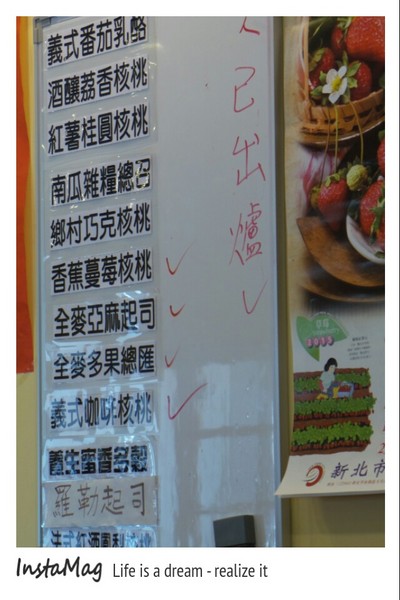 義式番茄乳酪
酒釀荔香核桃
紅薯桂圓核桃
南瓜雜糧總召
鄉村巧克核桃
香蕉蔓莓核桃
全麥亞麻起司
全麥多果總匯
義式咖啡核桃
養生蜜香多穀
羅勒起司
法式紅酒
已出爐
新北市
InstaMag Life is a dream - realize it